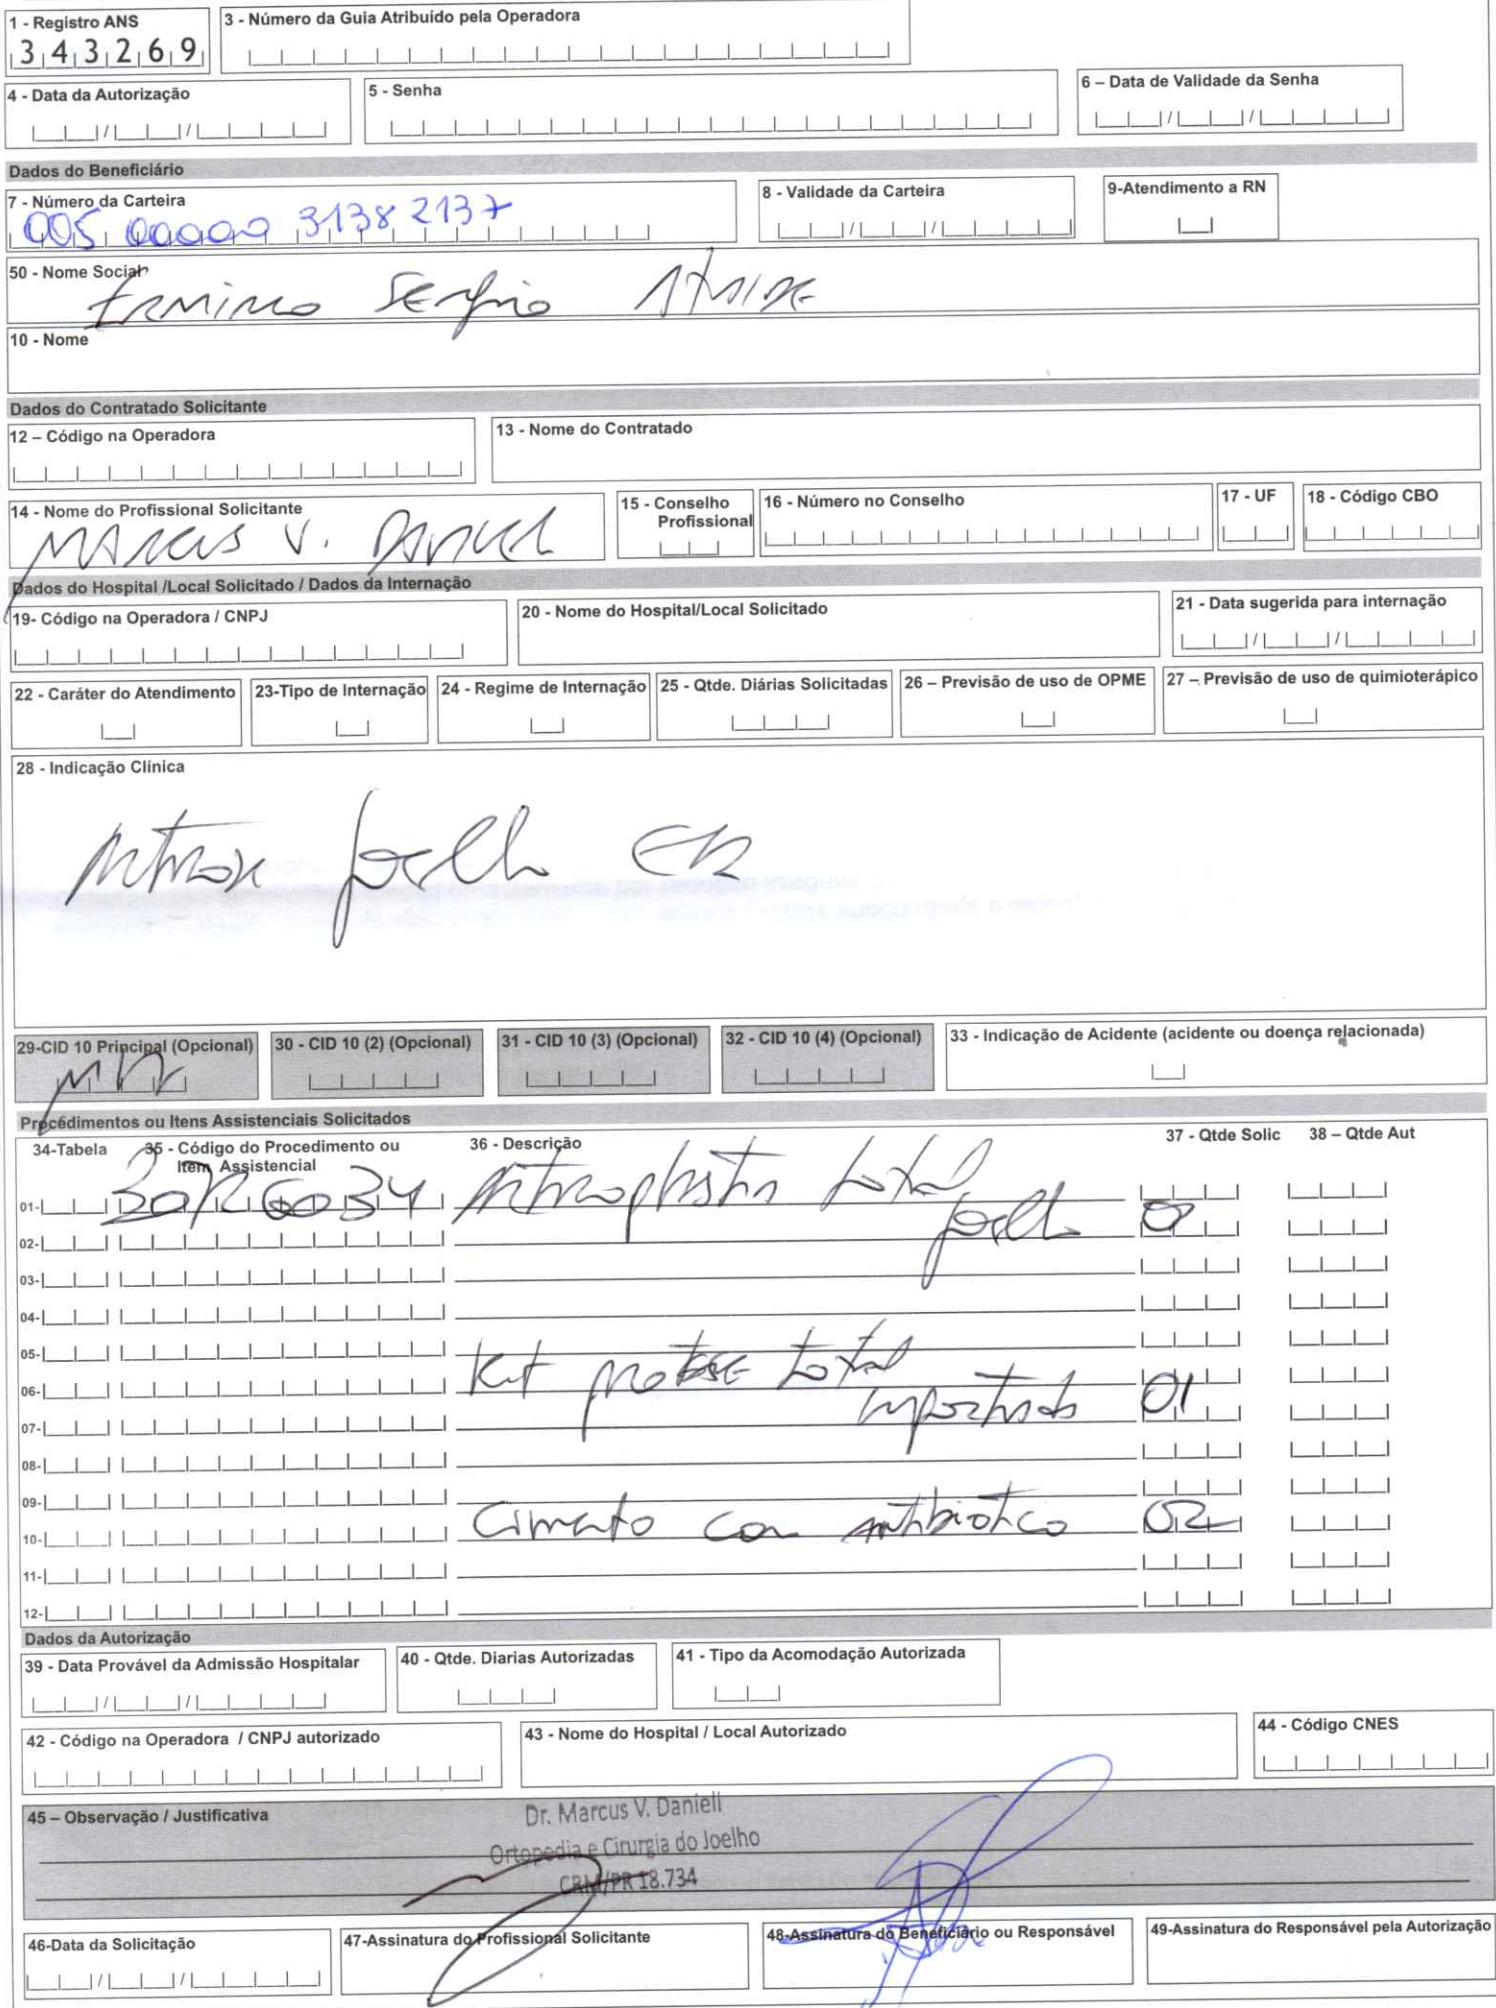 1 - Registro ANS
3 4 3 2 6 9
3 - Número da Guia Atribuído pela Operadora
4 - Data da Autorização
5 - Senha
6 – Data de Validade da Senha
Dados do Beneficiário
7 - Número da Carteira
005 00000 3138 2137
8 - Validade da Carteira
9-Atendimento a RN
50 - Nome Social
Sergio
10 - Nome
Dados do Contratado Solicitante
12 – Código na Operadora
13 - Nome do Contratado
14 - Nome do Profissional Solicitante
Marcus V. Danieli
15 - Conselho Profissional
16 - Número no Conselho
17 - UF
18 - Código CBO
Dados do Hospital /Local Solicitado / Dados da Internação
19- Código na Operadora / CNPJ
20 - Nome do Hospital/Local Solicitado
21 - Data sugerida para internação
22 - Caráter do Atendimento
23-Tipo de Internação
24 - Regime de Internação
25 - Qtde. Diárias Solicitadas
26 – Previsão de uso de OPME
27 – Previsão de uso de quimioterápico
28 - Indicação Clínica
Artrose joelho
29-CID 10 Principal (Opcional)
30 - CID 10 (2) (Opcional)
31 - CID 10 (3) (Opcional)
32 - CID 10 (4) (Opcional)
33 - Indicação de Acidente (acidente ou doença relacionada)
Procedimentos ou Itens Assistenciais Solicitados
34-Tabela
35 - Código do Procedimento ou Item Assistencial
36 - Descrição
37 - Qtde Solic
38 – Qtde Aut
01- 30726034 Artroplastia total
02- joelho
03-
04-
05-
06- Kit protese total
07- importado 01
08-
09-
10- Cimento com antibiotico 02
11-
12-
Dados da Autorização
39 - Data Provável da Admissão Hospitalar
40 - Qtde. Diarias Autorizadas
41 - Tipo da Acomodação Autorizada
42 - Código na Operadora / CNPJ autorizado
43 - Nome do Hospital / Local Autorizado
44 - Código CNES
45 – Observação / Justificativa
Dr. Marcus V. Danieli
Ortopedia e Cirurgia do Joelho
CRM/PR 18.734
46-Data da Solicitação
47-Assinatura do Profissional Solicitante
48-Assinatura do Beneficiário ou Responsável
49-Assinatura do Responsável pela Autorização